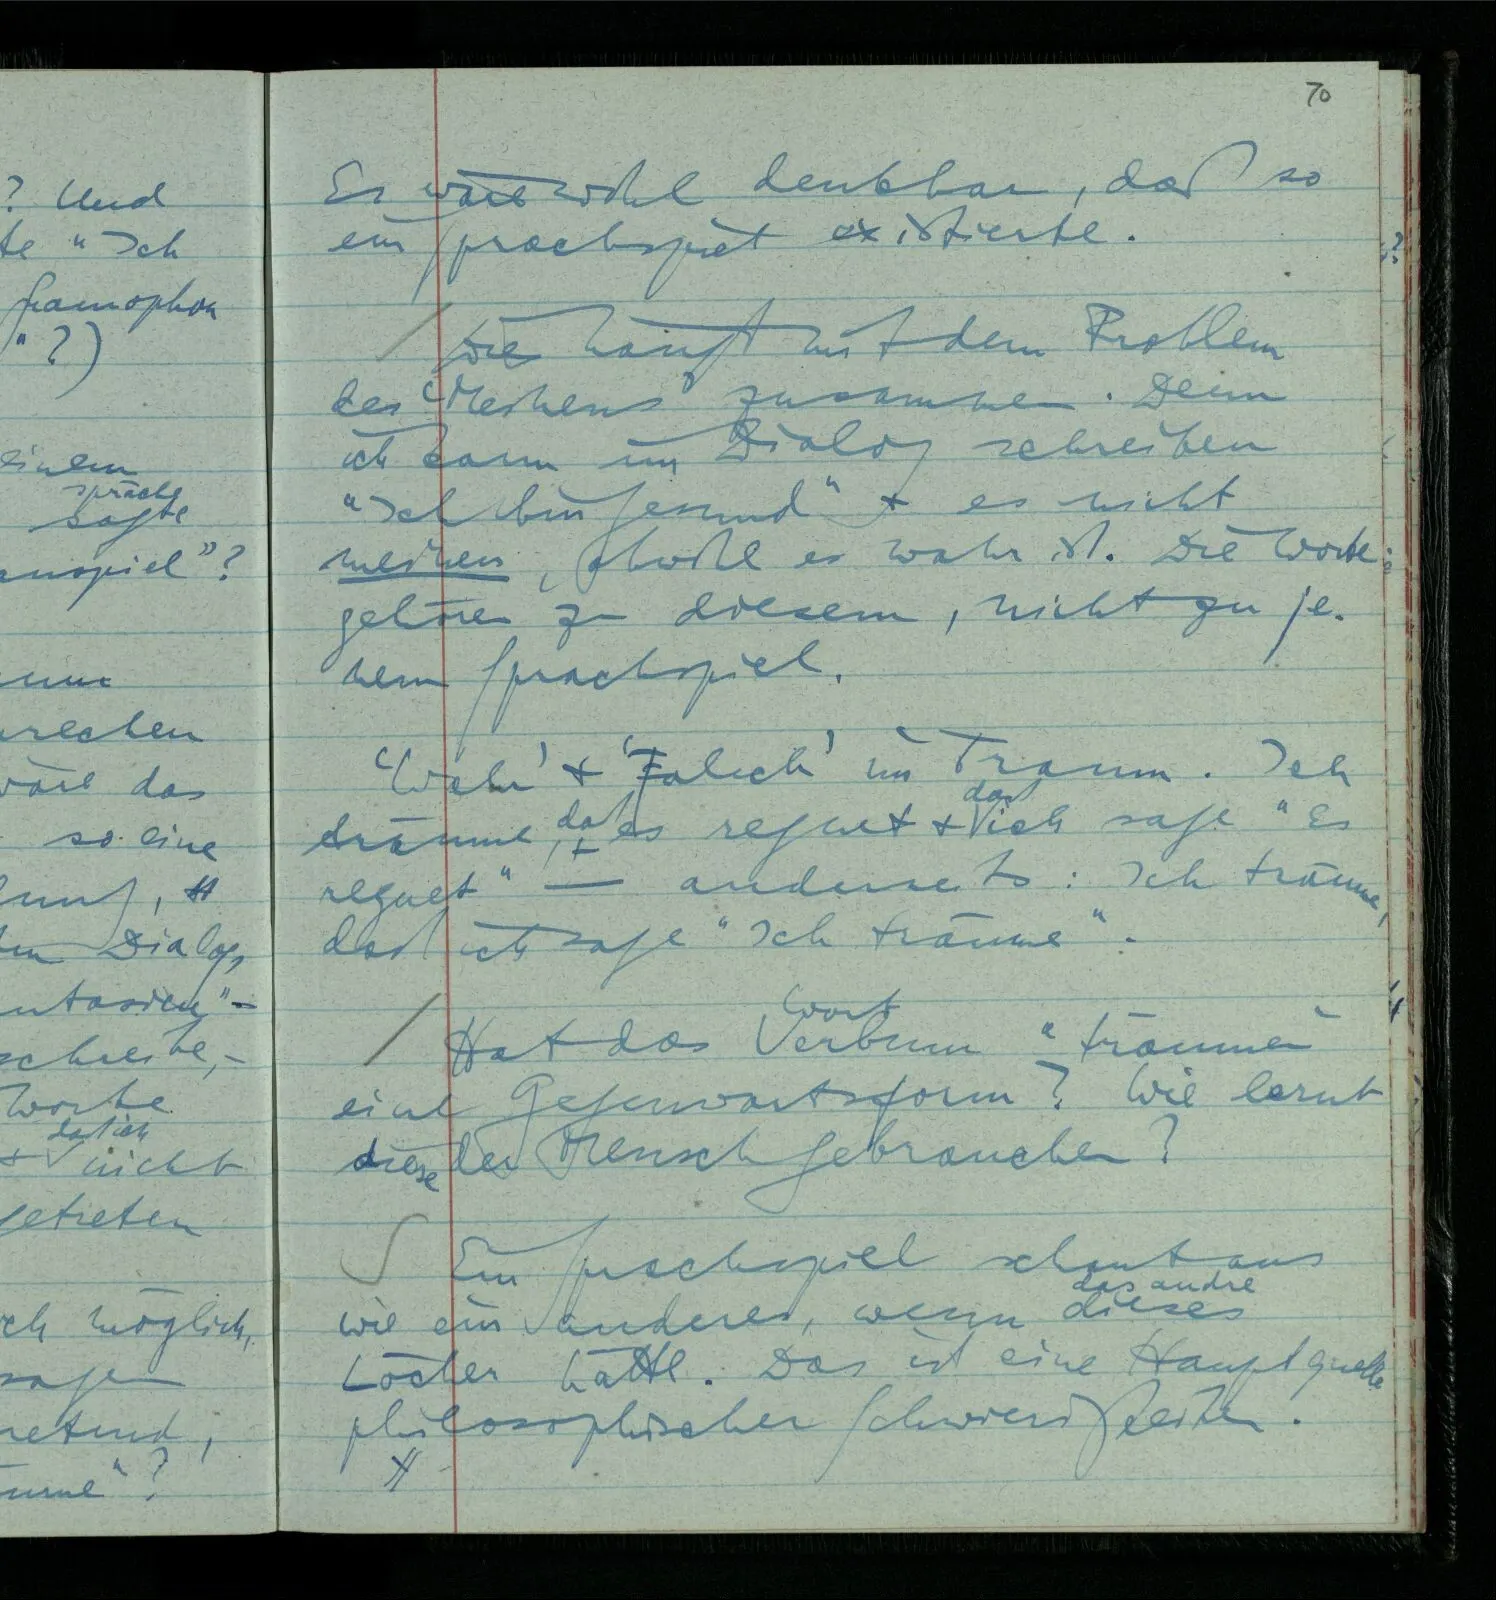 ? Und
te "Ich
Gramophon
" ?)
einem
spräche
sagte
enspiel"?
rechen
wäre das
so eine
Dialog,
schreibe, –
Worte
daß ich
+ nicht
getreten
ch möglich,
sagen
retend,
ume"?
70
Es wäre wohl denkbar, daß so
ein Sprachspiel existierte.
/ Dies hängt mit dem Problem
des 'Meinens' zusammen. Denn
ich kann im Dialog schreiben
"Ich bin gesund" + es nicht
meinen, obwohl es wahr ist. Die Worte
gehören zu diesem, nicht zu je-
nem Sprachspiel.
'Wahr' + 'Falsch' im Traum. Ich
daß
träume, daß es regnet + ich sage "Es
regnet" — anderseits: Ich träume,
daß ich sage "Ich träume".
Wort
/ Hat das Verbum "träumen"
eine Gegenwartsform? Wie lernt
diese der Mensch gebrauchen?
∫ Ein Sprachspiel schaut aus
das andre
wie ein anderes, wenn dieses
Löcher hätte. Das ist eine Hauptquelle
philosophischer Schwierigkeiten.